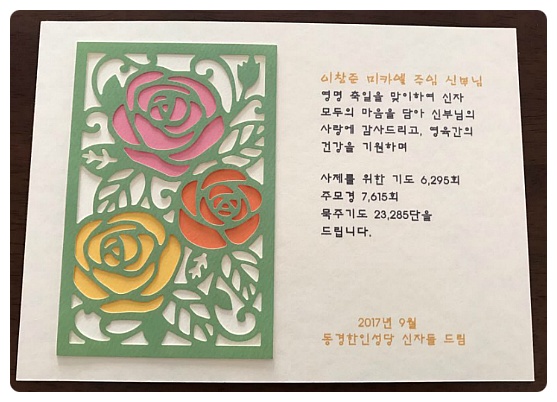 이창준 미카엘 주임 신부님
영명 축일을 맞이하여 신자
모두의 마음을 담아 신부님의
사랑에 감사드리고, 영육간의
건강을 기원하며
사제를 위한 기도 6,295회
주모경 7,615회
묵주기도 23,285단을
드립니다.
2017년 9월
동경한인성당 신자들 드림